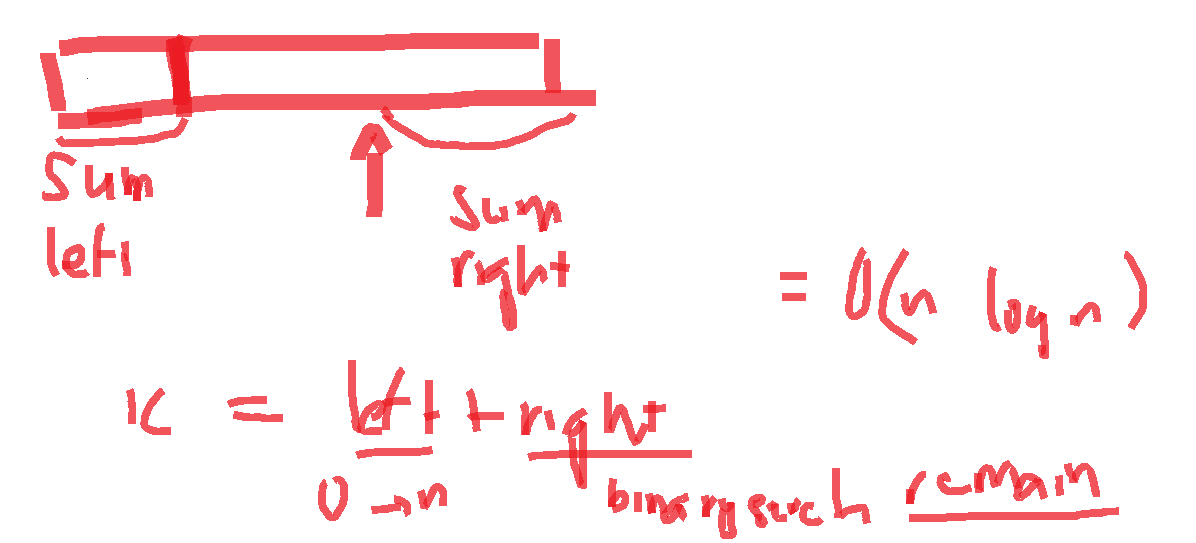 Sum
left
Sum
right
= O(n log n)
K = left + right
0 → n
binary such remain